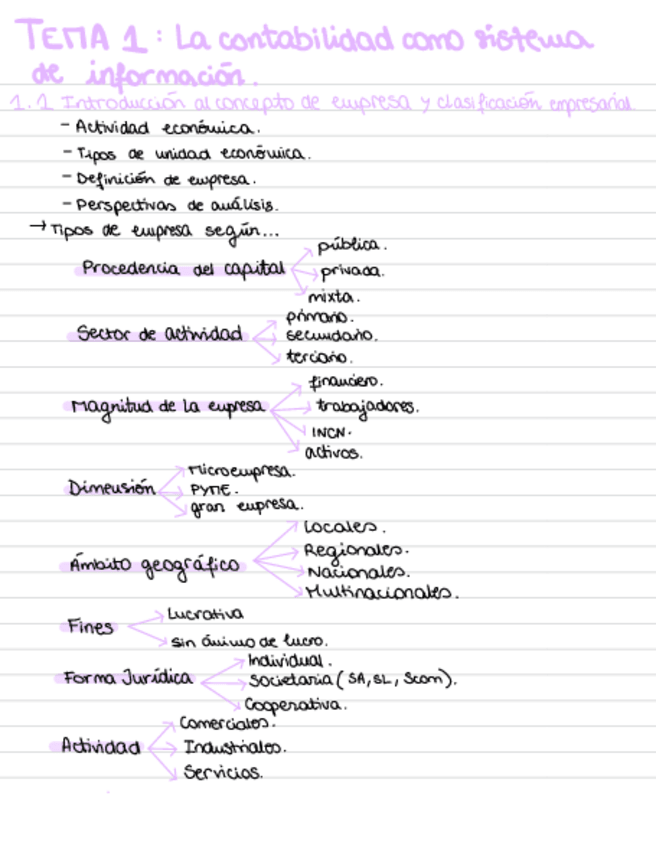 TEMA 1: La contabilidad como sistema
de información.
1.1 Introducción al concepto de empresa y clasificación empresarial.
- Actividad económica.
- Tipos de unidad económica.
- Definición de empresa.
- Perspectivas de análisis.
→ Tipos de empresa según...
Procedencia del capital
pública.
privada.
mixta.
Sector de actividad
primario.
secundario.
terciario.
Magnitud de la empresa
financiero.
trabajadores.
INCN.
activos.
Dimensión
Microempresa.
PYME.
gran empresa.
Ámbito geográfico
Locales.
Regionales.
Nacionales.
Multinacionales.
Fines
Lucrativa
sin ánimo de lucro.
Forma Jurídica
Individual.
Societaria (SA, SL, Scom).
Cooperativa.
Actividad
Comerciales.
Industriales.
Servicios.